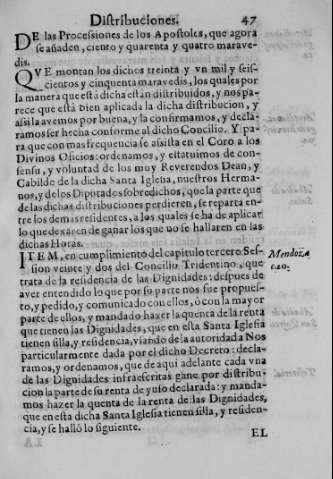 Distribuciones. 47
DE las Processiones de los Apostoles, que agora
se añaden, ciento y quarenta y quatro marave-
dis.
QVE montan los dichos treinta y vn mil y seis-
cientos y cinquenta maravedis, los quales por
la manera que està dicha estàn distribuidos, y nos pa-
rece que està bien aplicada la dicha distribucion, y
assi la avemos por buena, y la confirmamos, y decla-
ramos ser hecha conforme al dicho Concilio. Y pa-
ra que con mas frequencia se assista en el Coro a los
Divinos Oficios: ordenamos, y estatuimos de con-
sensu, y voluntad de los muy Reverendos Dean, y
Cabildo de la dicha Santa Iglesia, nuestros Herma-
nos, y de los Diputados sobredichos, que la parte que
de las dichas distribuciones perdieren, se reparta en-
tre los demàs residentes, a los quales se ha de aplicar
lo que dexaren de ganar los que no se hallaren en las
dichas Horas.
ITEM, en cumplimiento del capitulo tercero Ses-
sion veinte y dos del Concilio Tridentino, que
trata de la residencia de las Dignidades: despues de
aver entendido lo que por su parte nos fue propues-
to, y pedido, y comunicado con ellos, ò con la mayor
parte de ellos, y mandado hazer la quenta de la renta
que tienen las Dignidades, que en esta Santa Iglesia
tienen silla, y residencia, vsando de la autoridad a Nos
particularmente dada por el dicho Decreto: decla-
ramos, y ordenamos, que de aqui adelante cada vna
de las Dignidades infraescritas gane por distribu-
cion la parte de su renta de yuso declarada: y manda-
mos hazer la quenta de la renta de las Dignidades,
que en esta dicha Santa Iglesia tienen silla, y residen-
cia, y se hallò lo siguiente.
EL
Mendoza